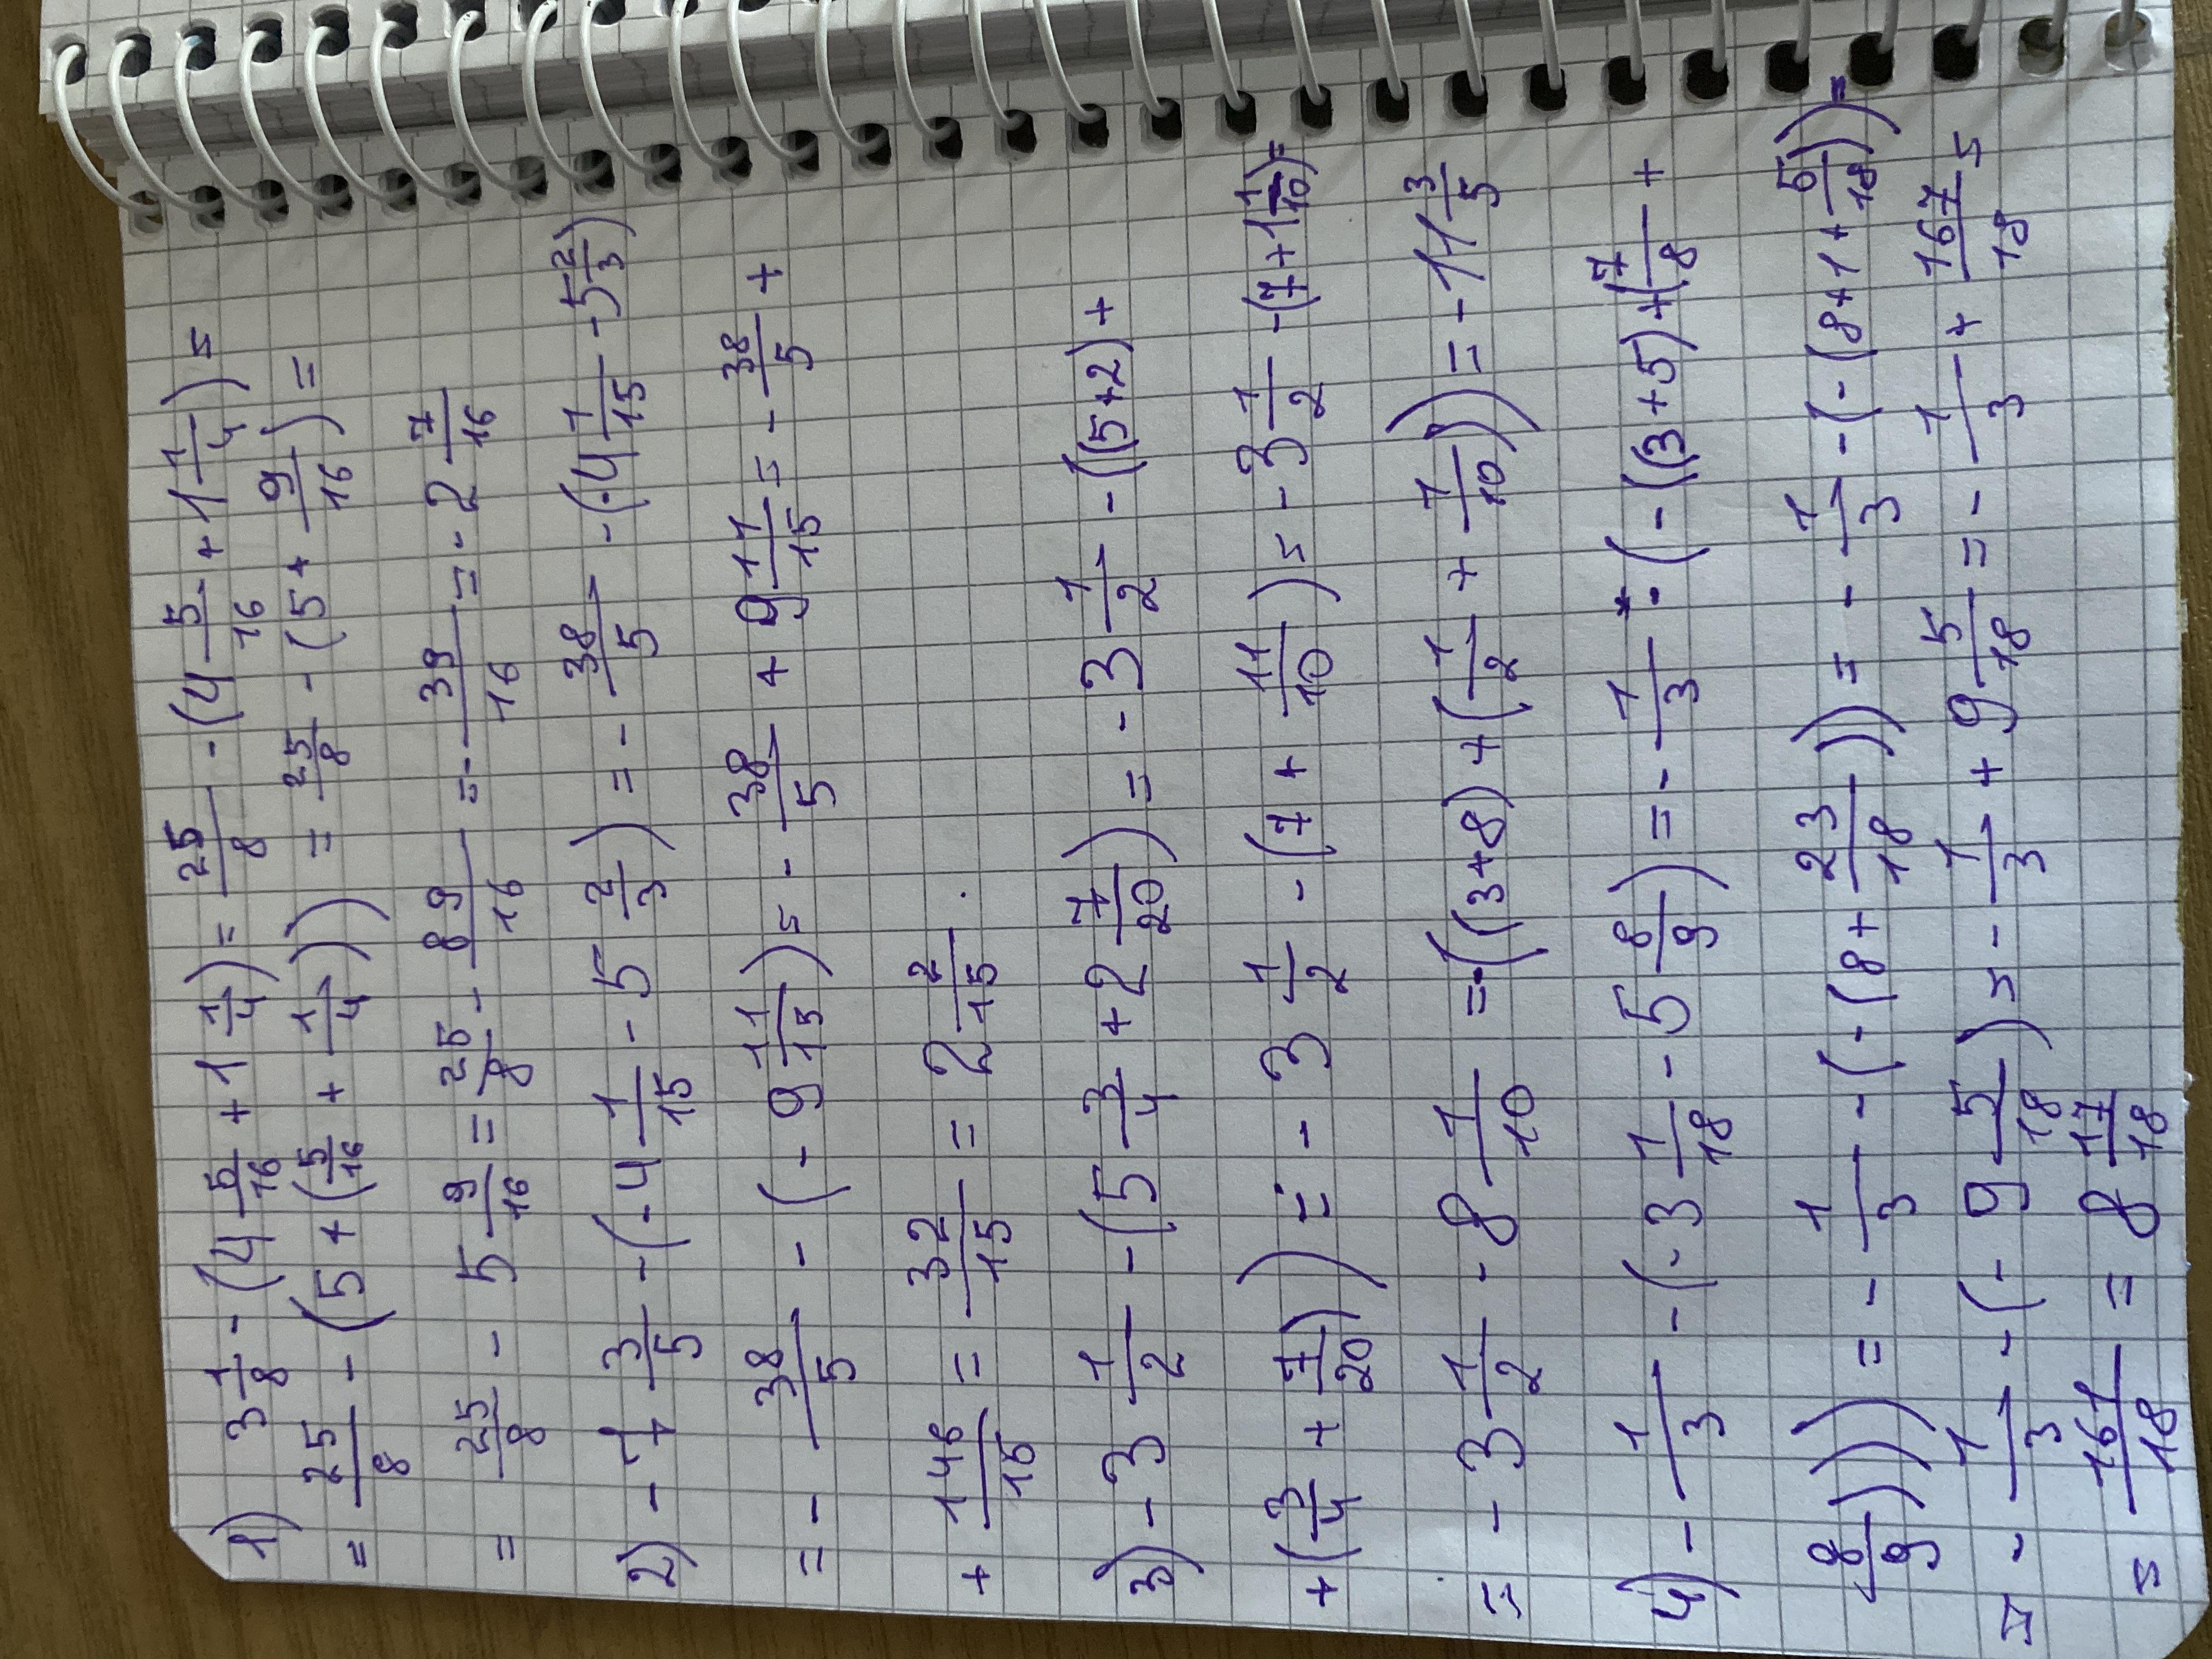 1) 3 1/8 - (4 5/16 + 1 1/4) = 25/8 - (4 5/16 + 1 1/4) =
= 25/8 - (5 + (5/16 + 1/4)) = 25/8 - (5 + 9/16) =
= 25/8 - 5 9/16 = 25/8 - 89/16 = - 39/16 = - 2 7/16
2) - 7 3/5 - (-4 1/15 - 5 2/3) = - 38/5 - (-4 1/15 - 5 2/3)
= - 38/5 - (- 9 11/15) = - 38/5 + 9 11/15 = - 38/5 +
+ 146/15 = 32/15 = 2 2/15
3) - 3 1/2 - (5 3/4 + 2 7/20) = - 3 1/2 - ((5+2) +
+ (3/4 + 7/20)) = - 3 1/2 - (7 + 11/10) = - 3 1/2 - (7 + 1 1/10) =
= - 3 1/2 - 8 1/10 = -((3+8) + (1/2 + 1/10)) = - 11 3/5
4) - 1/3 - (-3 1/18 - 5 8/9) = - 1/3 - (-((3+5) + (1/8 +
8/9))) = - 1/3 - (-(8 + 23/18)) = - 1/3 - (-(8+1+ 5/18)) =
= - 1/3 - (- 9 5/18) = - 1/3 + 9 5/18 = - 1/3 + 167/18 =
= 161/18 = 8 17/18